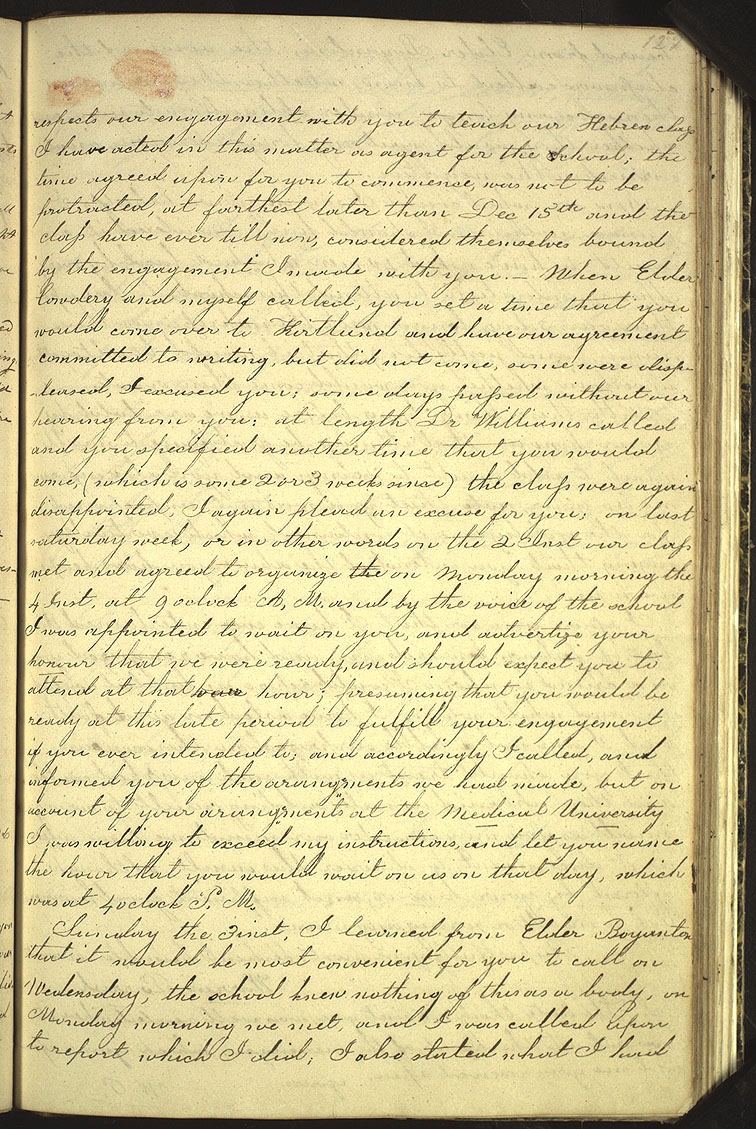 127
respects our engagement with you to teach our Hebrew class
I have acted in this matter as agent for the School; the
time agreed upon for you to commence, was not to be
protracted, at farthest later than Dec 15th and the
class have ever till now, considered themselves bound
by the engagement I made with you.— When Elder
Cowdery and myself called, you set a time that you
would come over to Kirtland and have our agreement
committed to writing, but did not come, some were disp-
-leased, I excused you; some days passed without our
hearing from you; at length Dr Williams called
and you specified another time that you would
come, (which is some 2 or 3 weeks since) the class were again
disappointed, I again plead an excuse for you; on last
saturday week, or in other words on the 2 Inst our class
met and agreed to organize the on Monday morning the
4 Inst. at 9 oclock A, M. and by the voice of the school
I was appointed to wait on you, and advertize your
honour that we were ready, and should expect you to
attend at that hour; presuming that you would be
ready at this late period to fulfill your engagement
if you ever intended to; and accordingly I called, and
informed you of the arangments we had made, but on
account of your arangments at the Medical University
I was willing to exceed my instructions, and let you name
the hour that you would wait on us on that day, which
was at 4 oclock P. M.
Sunday the 3 inst, I learned from Elder Boyanton
that it would be most convenient for you to call on
Wedensday, the school knew nothing of this as a body, on
Monday morning we met, and I was called upon
to report which I did; I also stated what I had